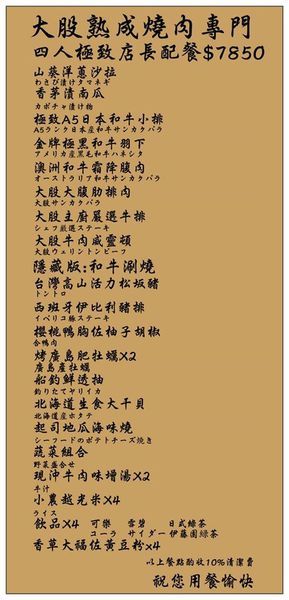 大股熟成燒肉專門
四人極致店長配餐$7850
山葵洋蔥沙拉
わさび漬けタマネギ
香茅漬南瓜
カボチャ漬け物
極致A5日本和牛小排
A5ランク日本産和牛サンカクバラ
金牌極黑和牛羽下
アメリカ産黒毛和牛ハネシタ
澳洲和牛霜降腹肉
オーストラリア和牛サンカクバラ
大股大腹肋排肉
大股サンカクバラ
大股主廚嚴選牛排
シェフ厳選ステーキ
大股牛肉威靈頓
大股ウェリントンビーフ
隱藏版:和牛涮燒
台灣高山活力松坂豬
トントロ
西班牙伊比利豬排
イベリコ豚ステーキ
櫻桃鴨胸佐柚子胡椒
合鴨肉
烤廣島肥牡蠣X2
廣島産牡蠣
船釣鮮透抽
釣りたてヤリイカ
北海道生食大干貝
北海道産ホタテ
起司地瓜海味燒
シーフードのポテトチーズ焼き
蔬菜組合
野菜盛合せ
現沖牛肉味增湯X2
牛汁
小農越光米X4
ライス
飲品X4 可樂 雪碧 日式綠茶
コーラ サイダー 伊藤園綠茶
香草大福佐黃豆粉x4
以上餐點酌收10%清潔費
祝您用餐愉快